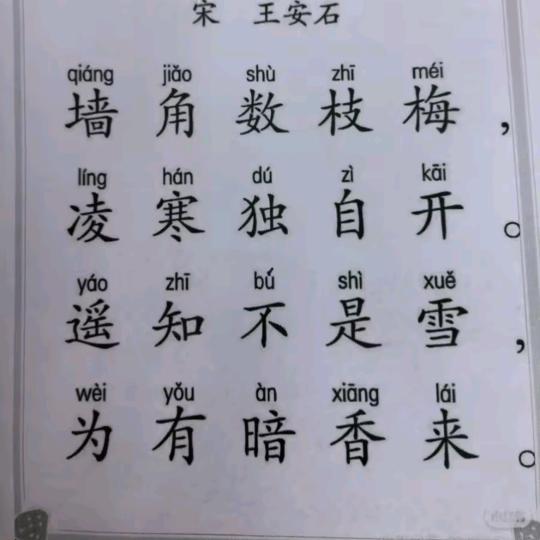 宋 王安石
qiáng jiǎo shù zhī méi
墙角数枝梅，
líng hán dú zì kāi
凌寒独自开。
yáo zhī bú shì xuě
遥知不是雪，
wèi yǒu àn xiāng lái
为有暗香来。